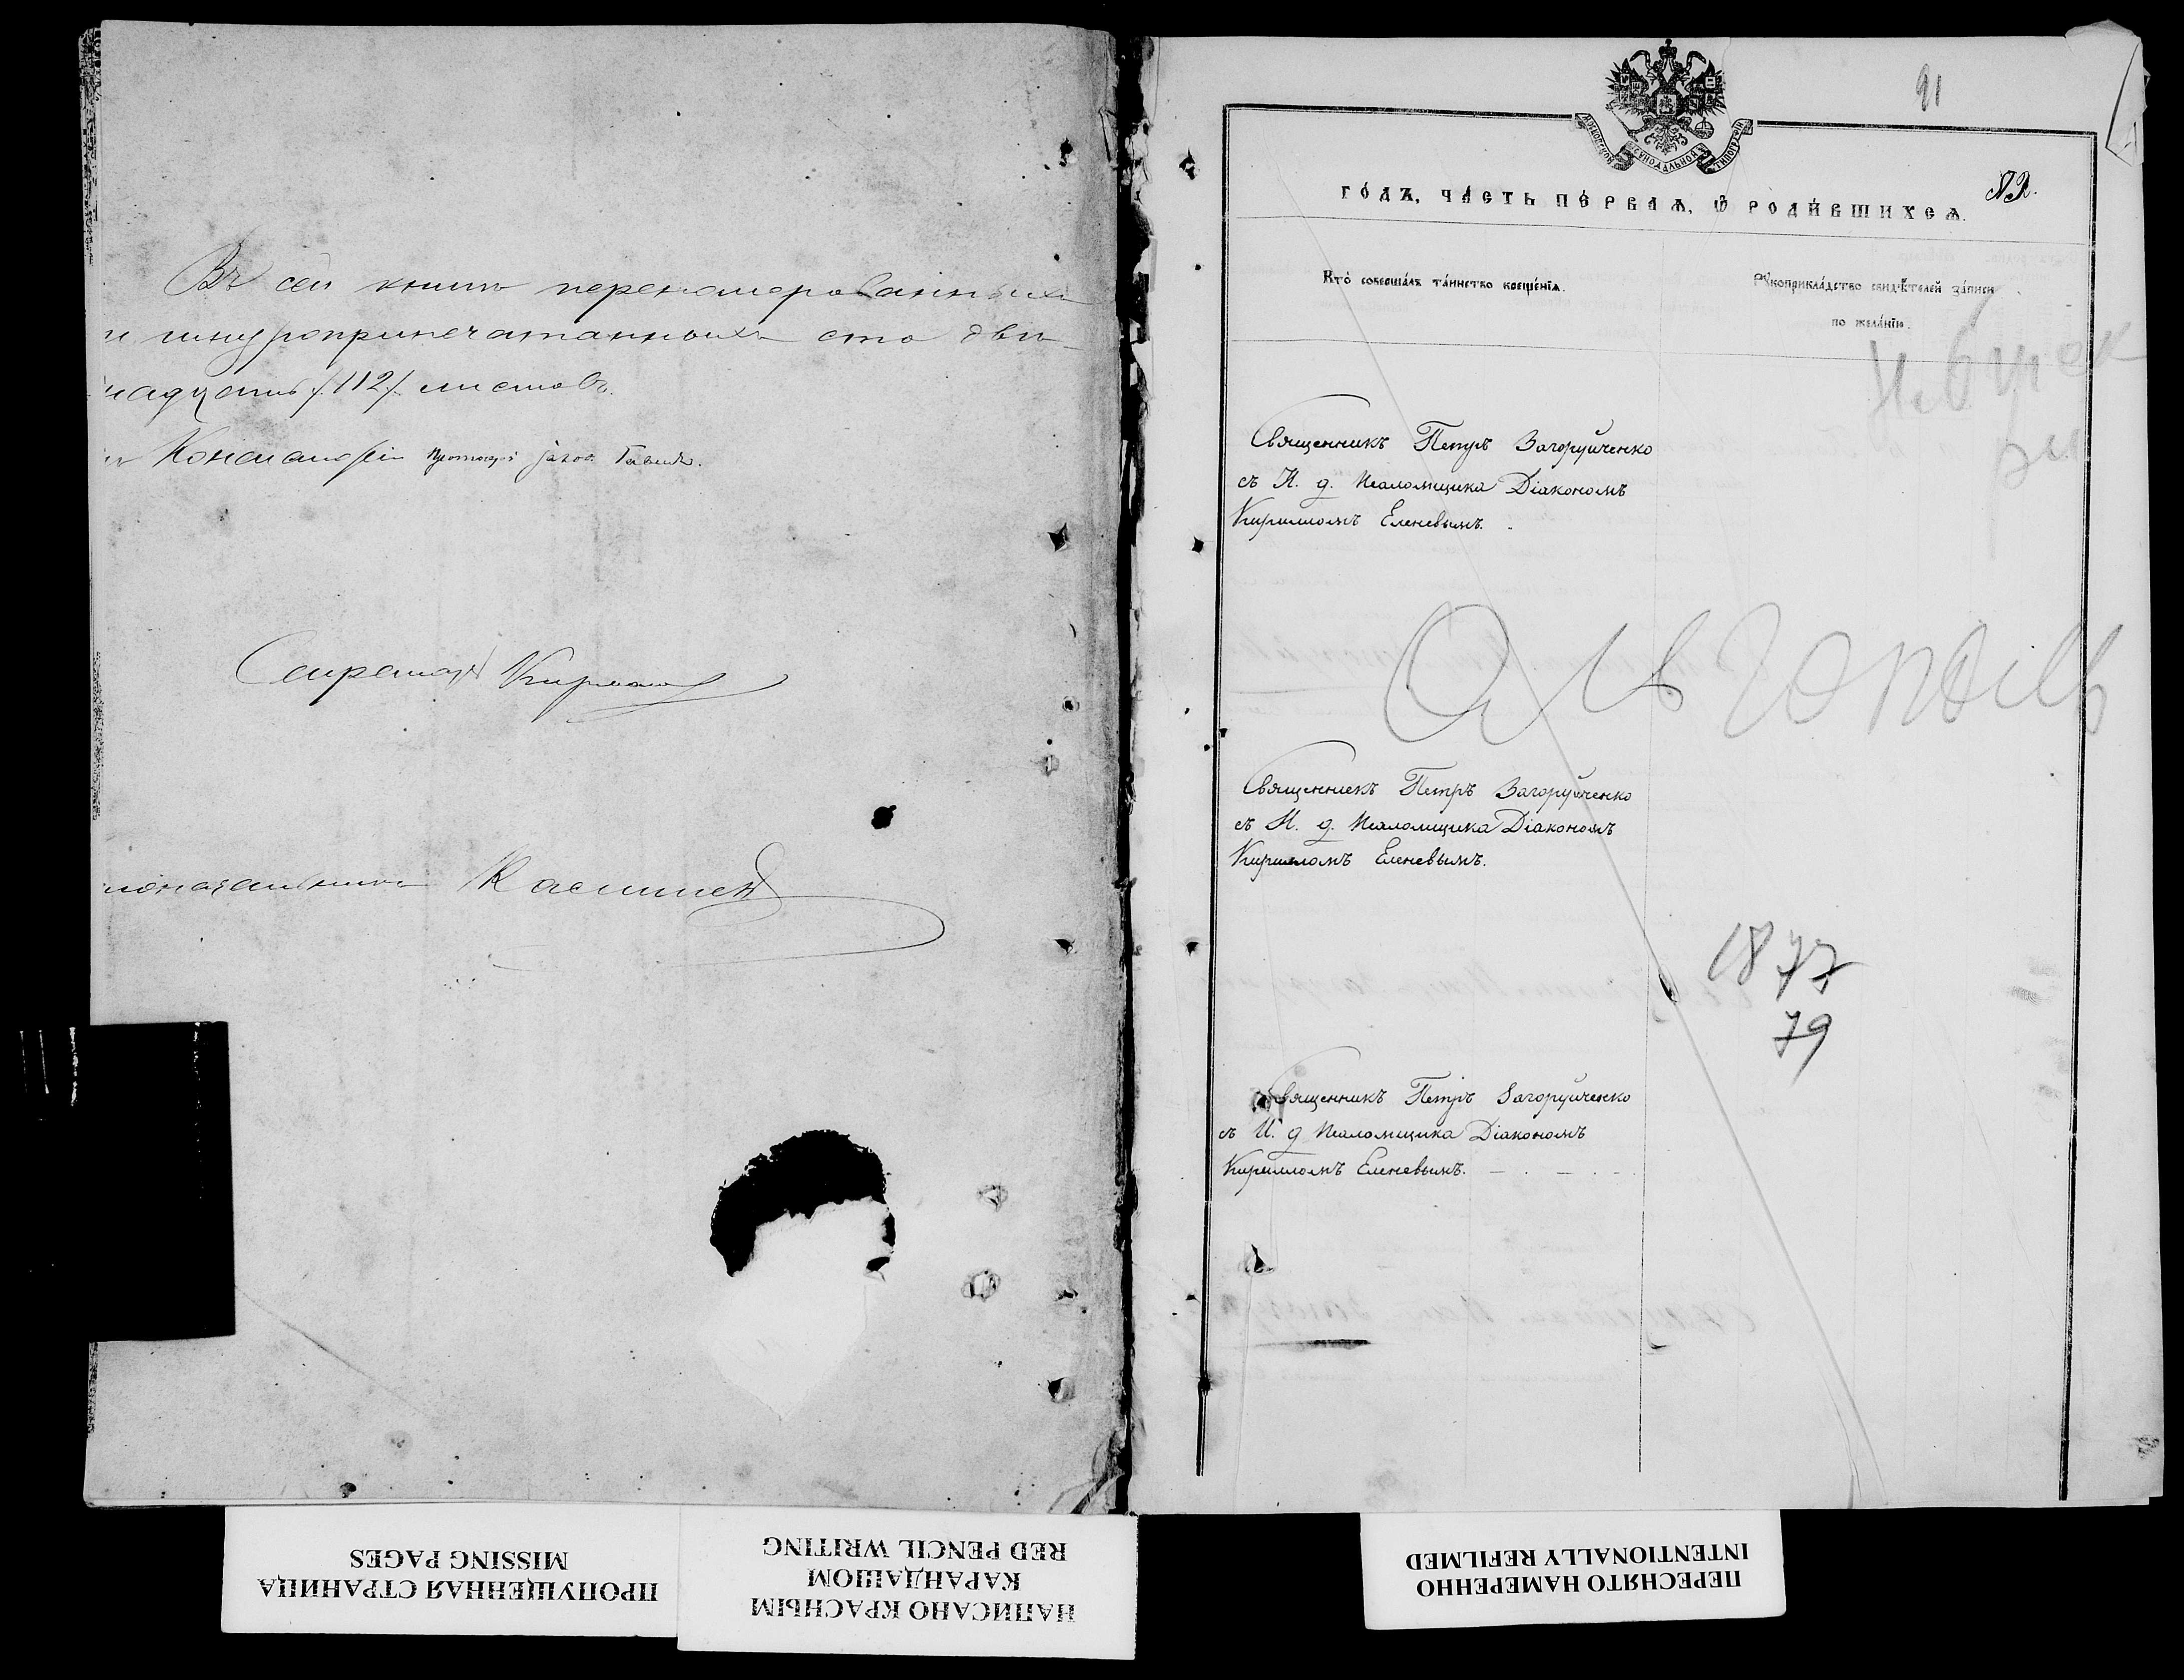 Въ сей книгѣ перенумерованныхъ
и шнуроприпечатанныхъ сто две-
надцать /.112/. листовъ.
Консисторіи
Секретарь
Касишен
91
МОСКОВСКОЙ СѴНОДАЛЬНОЙ ТИПОГРАФІИ
№2.
ГОДЪ, ЧАСТЬ ПЕРВАЯ, Ѡ РОДИВШИХСЯ.
Кто совершалъ таинство крещенія.
Рукоприкладство свидѣтелей записи
по желанію.
Священникъ Петръ Загоруйченко
съ И. д. Псаломщика Діакономъ
Кирилломъ Еленевымъ.
Священникъ Петръ Загоруйченко
съ И. д. Псаломщика Діакономъ
Кирилломъ Еленевымъ.
1877
79
Священникъ Петръ Загоруйченко
съ И. д Псаломщика Діакономъ
Кирилломъ Еленевымъ.
ПРОПУЩЕННАЯ СТРАНИЦА
MISSING PAGES
НАПИСАНО КРАСНЫМ
КАРАНДАШОМ
RED PENCIL WRITING
ПЕРЕСНЯТО НАМЕРЕННО
INTENTIONALLY REFILMED